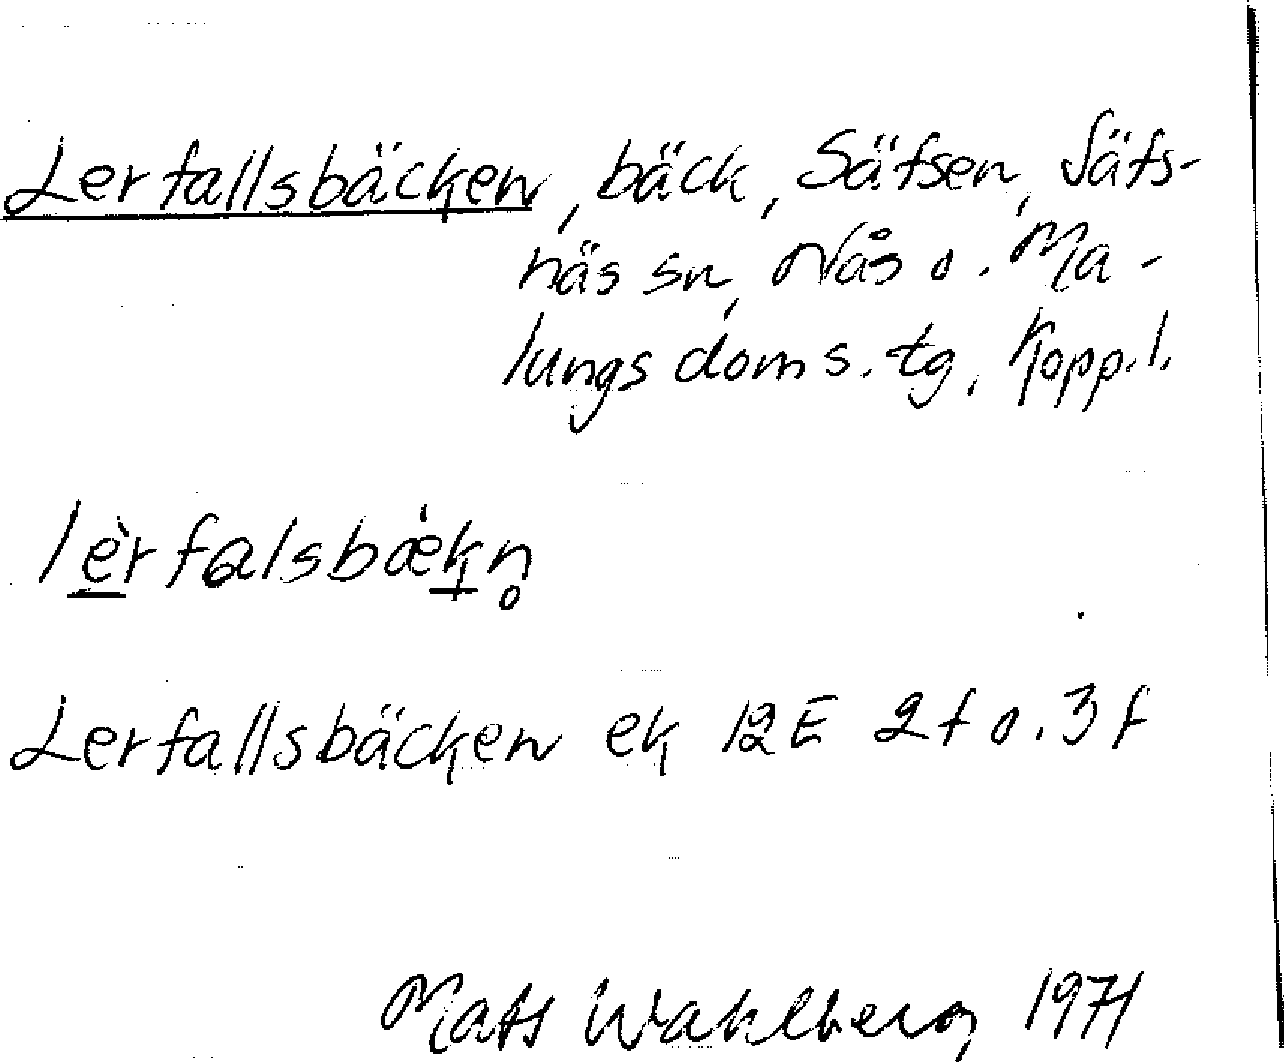 Lerfallsbäcken, bäck, Säfsen, Säfs-
näs sn, Nås o. Ma-
lungs doms. tg, Kopp. l.
lèrfalsbækn̥
Lerfallsbäcken ek 12E 2f o. 3f
Mats Wahlberg 1971